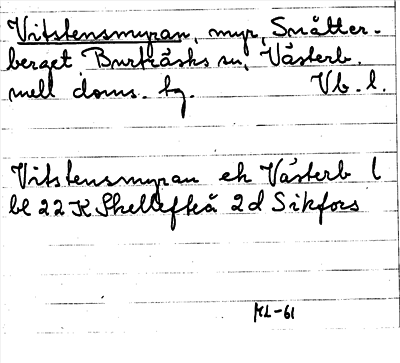 Vitstensmyran, myr, Snålter-
berget Burträsks sn, Västerb.
mell doms. hg. Vb. l.
Vitstensmyran ek Västerb l
bl 22 K Skellefteå 2d Sikfors
KL-61